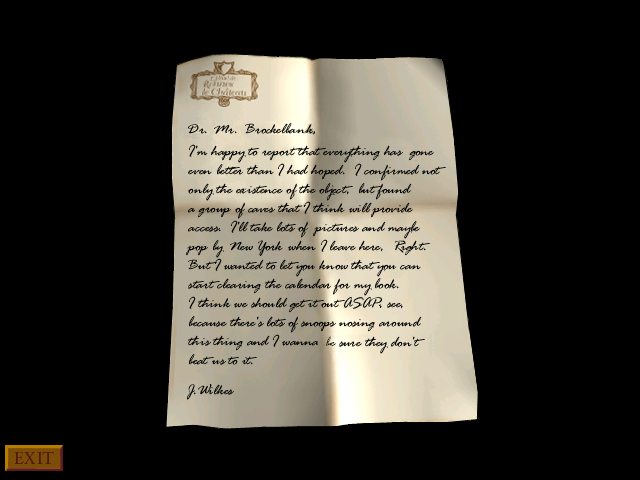 Rennes
le Château
Dr. Mr. Brockelbank,
I'm happy to report that everything has gone
even better than I had hoped. I confirmed not
only the existence of the object, but found
a group of caves that I think will provide
access. I'll take lots of pictures and maybe
pop by New York when I leave here. Right.
But I wanted to let you know that you can
start clearing the calendar for my book.
I think we should get it out ASAP, see,
because there's lots of snoops nosing around
this thing and I wanna be sure they don't
beat us to it.
J. Wilkes
EXIT